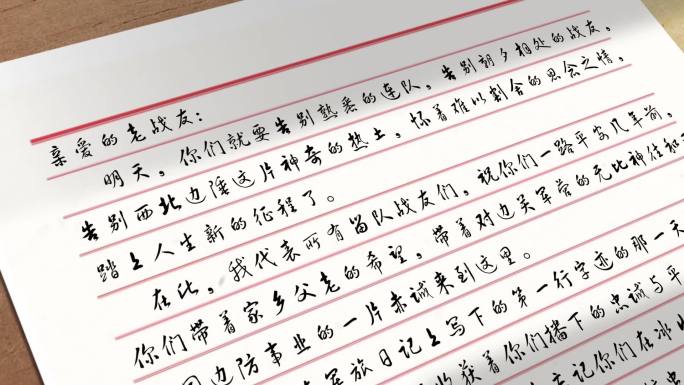 亲爱的老战友：
明天，你们就要告别熟悉的连队，告别朝夕相处的战友，
告别西北边陲这片神奇的热土，怀着难以割舍的思念之情，
踏上人生新的征程了。
在此，我代表所有留队战友们，祝你们一路平安几年前，
你们带着家乡父老的希望，带着对边关军营的无比神往和
边防事业的一片赤诚来到这里。
军旅日记上写下的第一行字迹的那一天
获着你们播下的忠诚与平
记你们在冰山